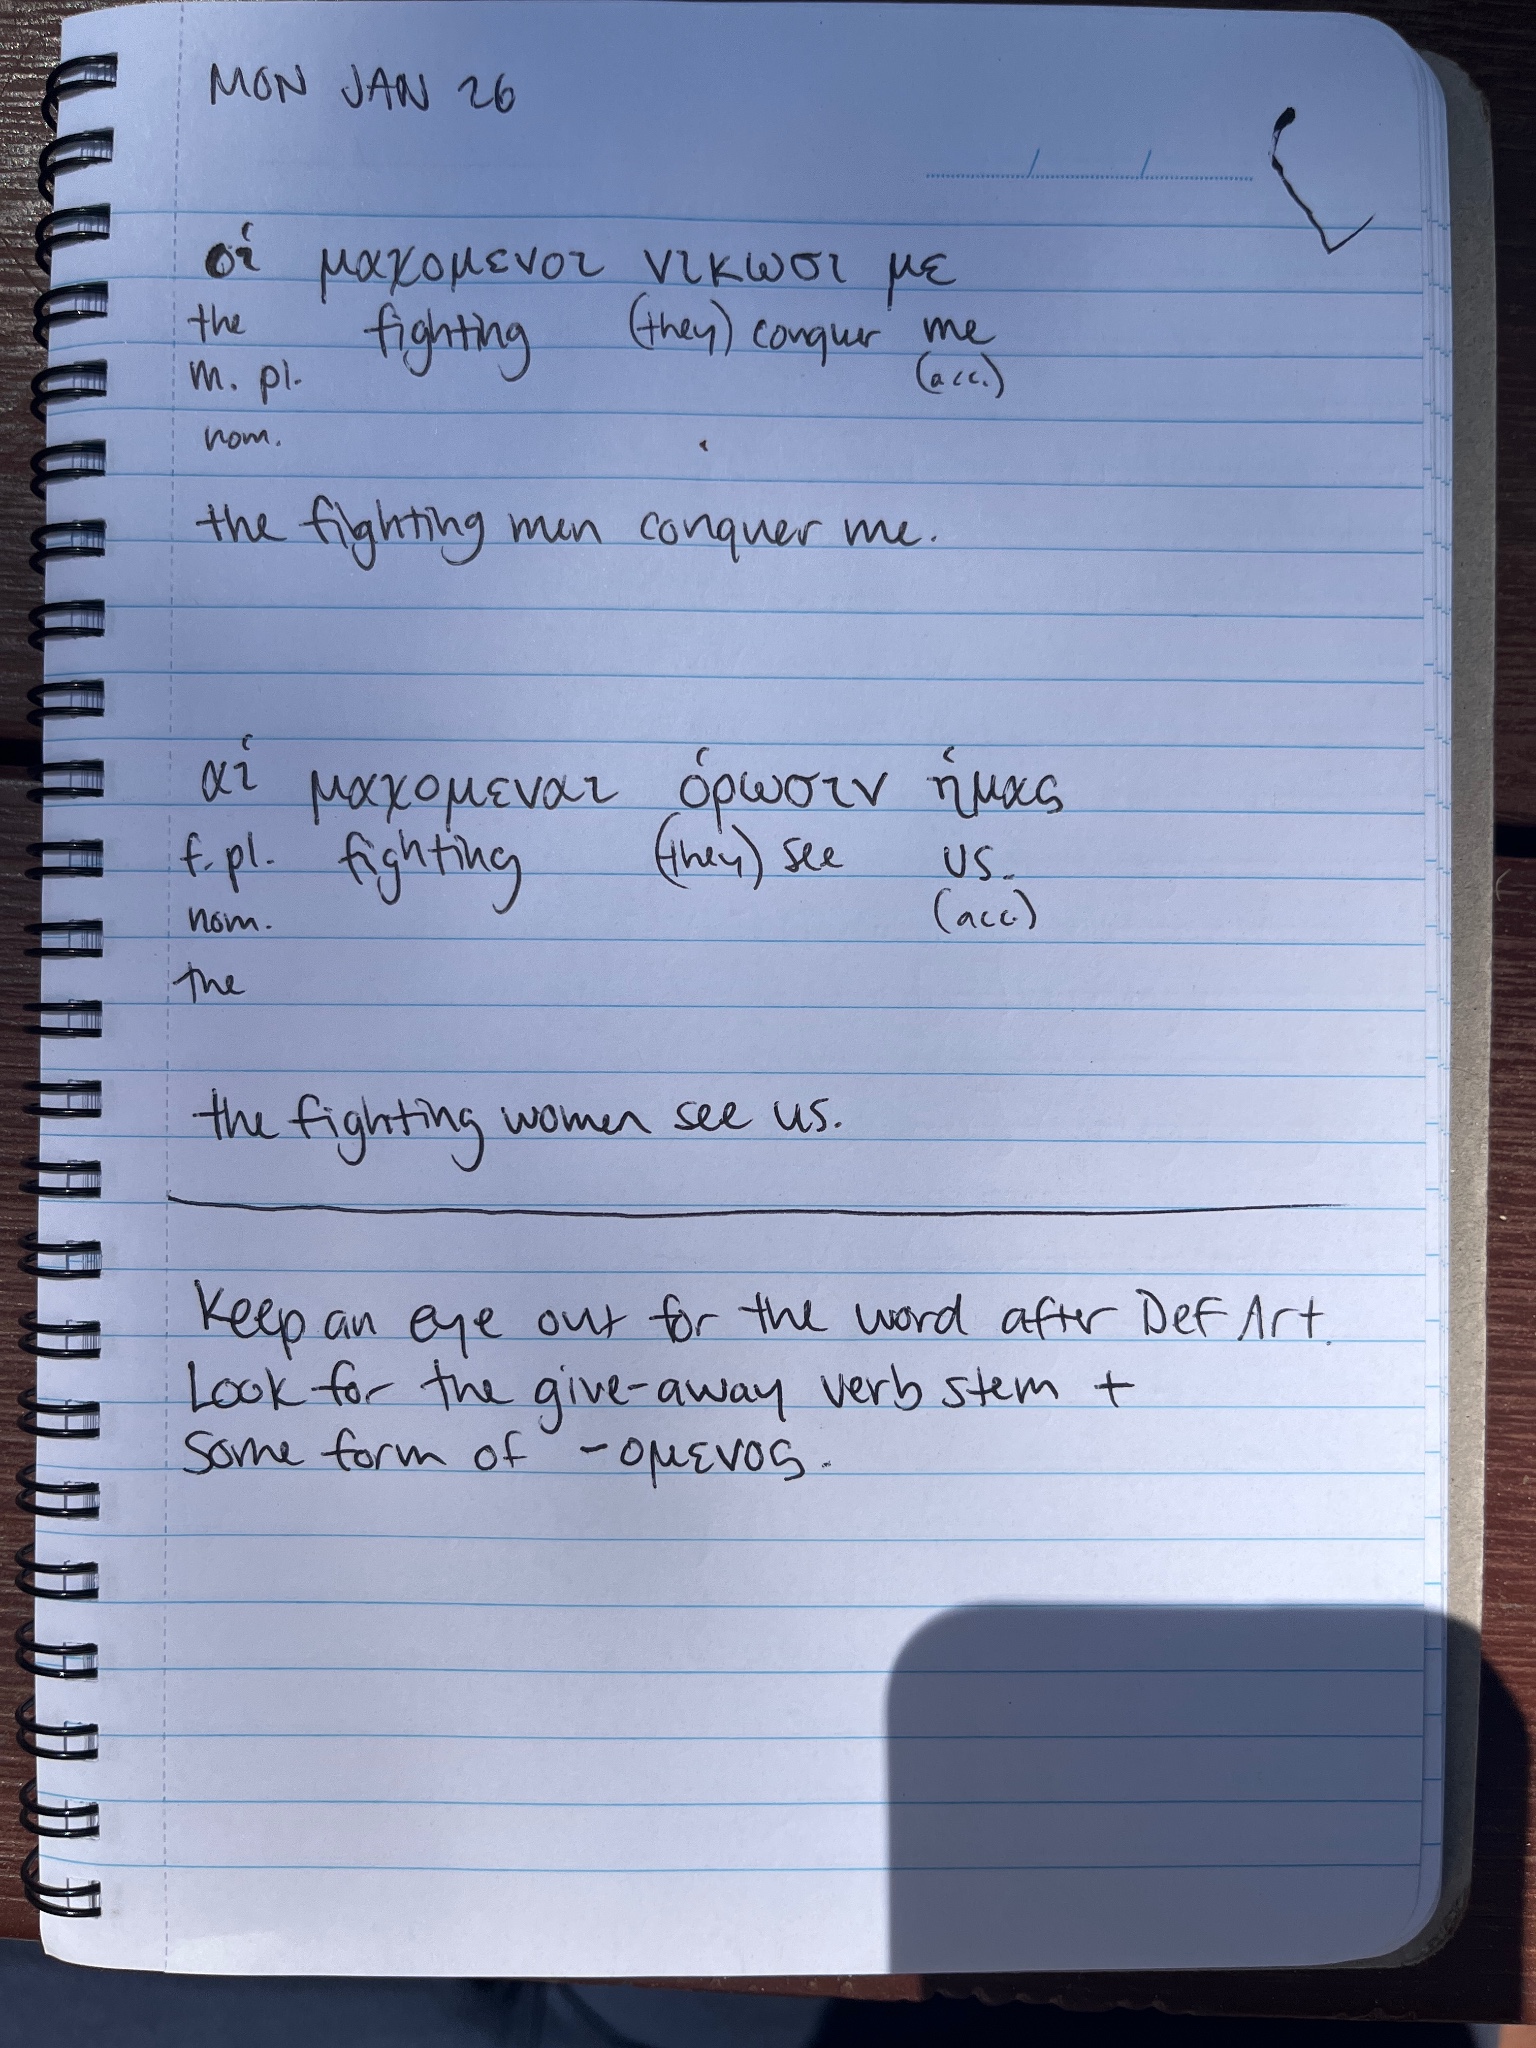 MON JAN 26
οἱ μαχομενοι νικωσι με
the fighting (they) conquer me
m. pl. (acc.)
nom.
the fighting men conquer me.
αἱ μαχομεναι ὁρωσιν ἡμας
f. pl. fighting (they) see us.
nom. (acc.)
the
the fighting women see us.
Keep an eye out for the word after Def Art.
Look for the give-away verb stem +
Some form of -ομενος.